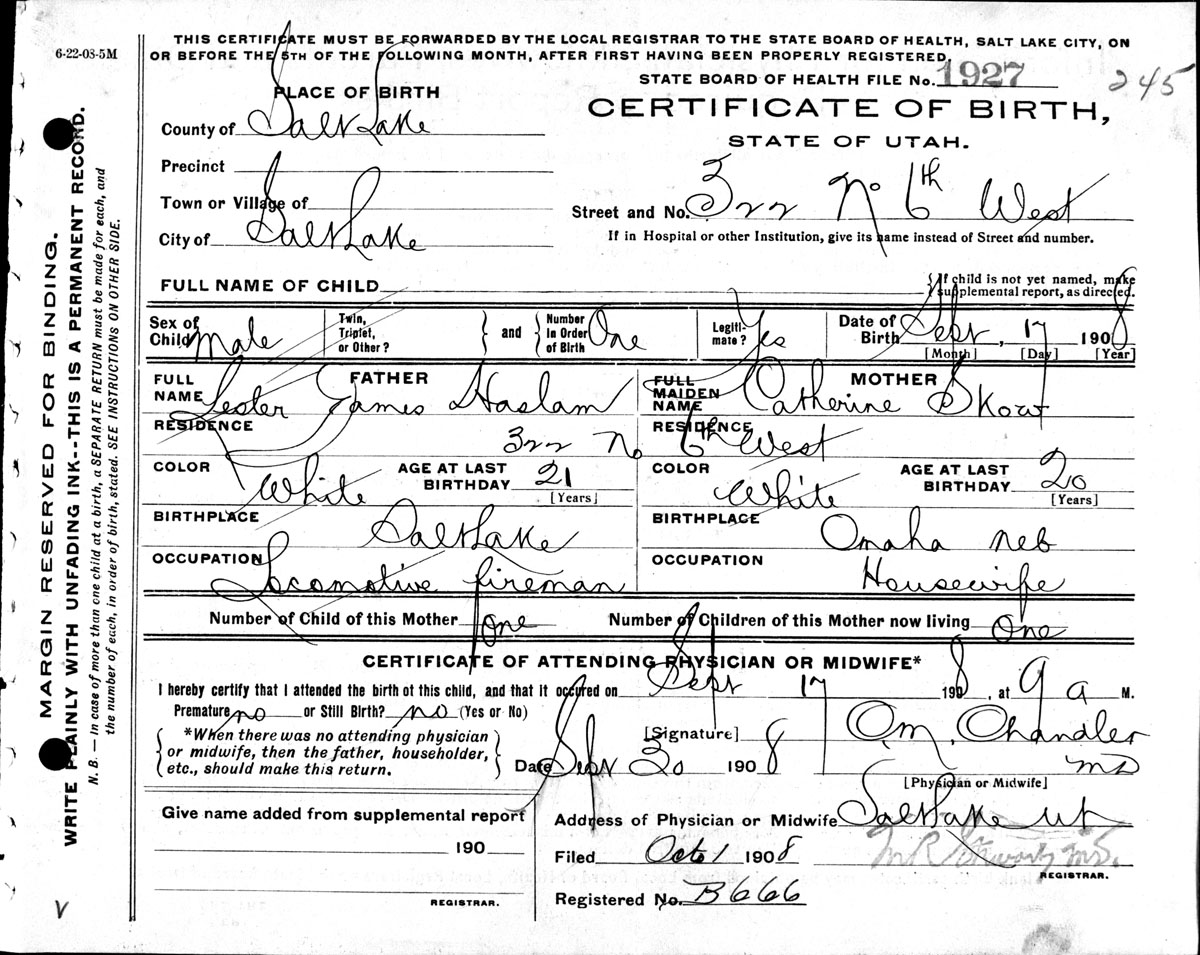 6-22-08-5M
THIS CERTIFICATE MUST BE FORWARDED BY THE LOCAL REGISTRAR TO THE STATE BOARD OF HEALTH, SALT LAKE CITY, ON
OR BEFORE THE 5TH OF THE FOLLOWING MONTH, AFTER FIRST HAVING BEEN PROPERLY REGISTERED.
STATE BOARD OF HEALTH FILE No. 1927
245
PLACE OF BIRTH
CERTIFICATE OF BIRTH,
STATE OF UTAH.
County of Salt Lake
Precinct
Town or Village of
Street and No. 322 No 6th West
City of Salt Lake
If in Hospital or other Institution, give its name instead of Street and number.
FULL NAME OF CHILD
{If child is not yet named, make
supplemental report, as directed.
Sex of Child Male
Twin, Triplet, or Other?
and
Number in Order of Birth One
Legitimate? Yes
Date of Birth Sept, 17 1908
[Month] [Day] [Year]
FATHER
FULL NAME Lester James Haslam
MOTHER
FULL MAIDEN NAME Catherine Skow
RESIDENCE 322 No
RESIDENCE 6th West
COLOR White
AGE AT LAST BIRTHDAY 21
[Years]
COLOR White
AGE AT LAST BIRTHDAY 20
[Years]
BIRTHPLACE Salt Lake
BIRTHPLACE Omaha Neb
OCCUPATION Locomotive fireman
OCCUPATION Housewife
Number of Child of this Mother One
Number of Children of this Mother now living One
CERTIFICATE OF ATTENDING PHYSICIAN OR MIDWIFE*
I hereby certify that I attended the birth of this child, and that it occured on Sept 17 1908, at 9 a M.
Premature no or Still Birth? no (Yes or No)
*When there was no attending physician
or midwife, then the father, householder,
etc., should make this return.
[Signature] O.M. Chandler MD
Date Sept 30 1908
[Physician or Midwife]
Give name added from supplemental report
190
REGISTRAR.
Address of Physician or Midwife Salt Lake Ut
Filed Oct 1 1908
REGISTRAR.
Registered No. B666
MARGIN RESERVED FOR BINDING.
WRITE PLAINLY WITH UNFADING INK--THIS IS A PERMANENT RECORD.
N. B. — In case of more than one child at a birth, a SEPARATE RETURN must be made for each, and
the number of each, in order of birth, stated. SEE INSTRUCTIONS ON OTHER SIDE.
V